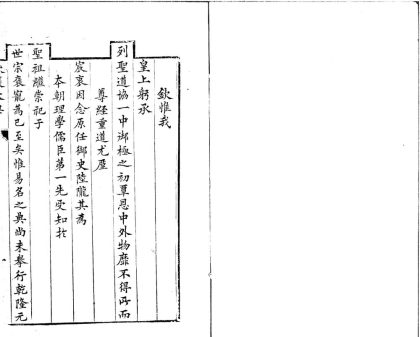 欽惟我
皇上躬承
列聖道協一中御極之初覃恩中外物靡不得所而
尊經重道尤廑
宸衷因念原任御史陸隴其為
本朝理學儒臣第一先受知於
聖祖繼崇祀于
世宗褒寵為已至矣惟易名之典尚未舉行乾隆元